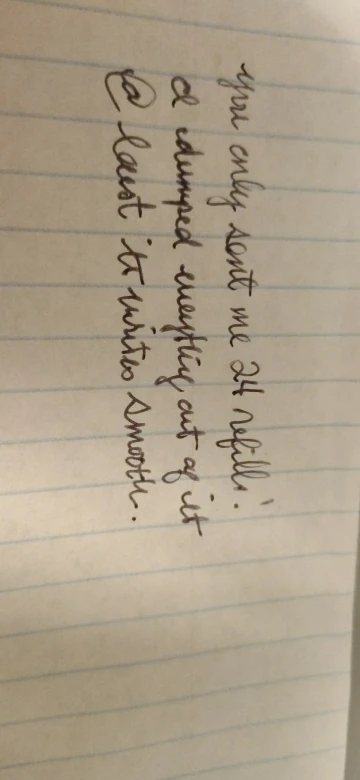 you only sent me 24 refills!
I dumped everything out of it
@ least it writes smooth.